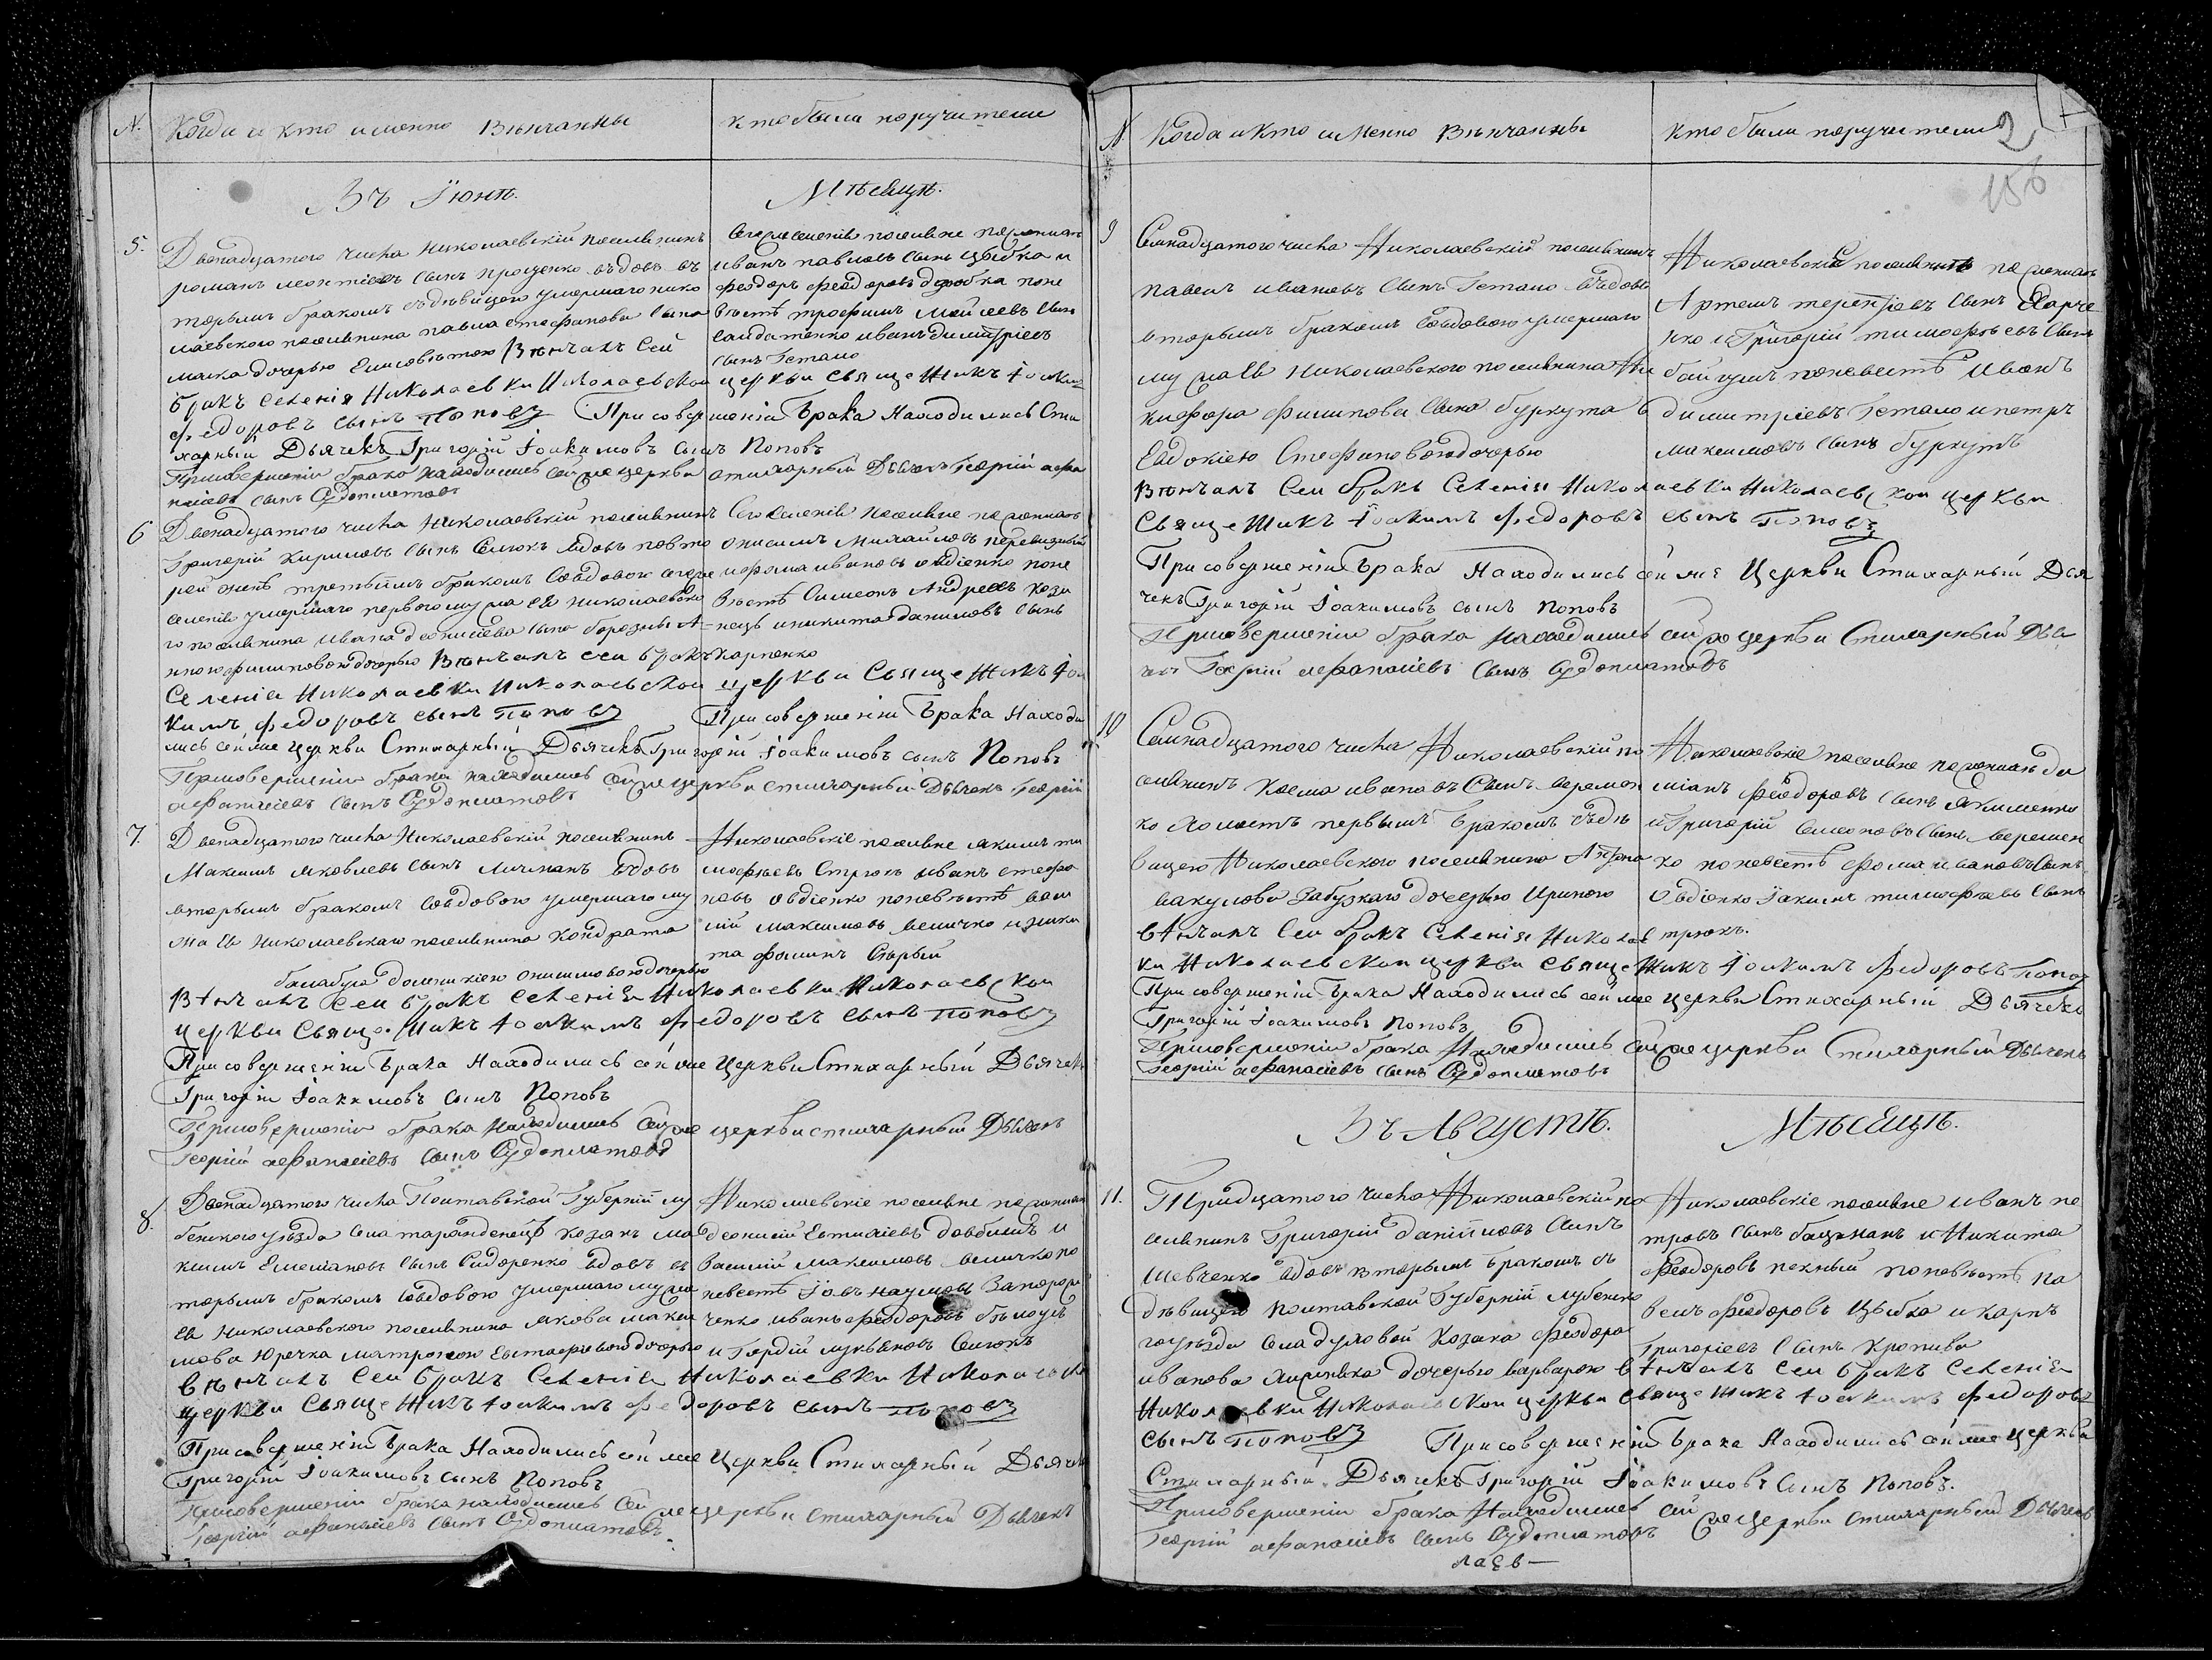 N. Когда и кто именно Вѣнчанны
кто были поручители
Въ Іюнѣ.
Мѣсяцѣ.
5. Двенадцатого числа Николаевскій поселянинъ
романъ леонтіевъ Сынъ Проценко вдовъ въ
торымъ бракомъ съ дѣвицею умершаго нико
лаевского поселянина павла стефанова Сына
дочерью Елисаветою Вѣнчалъ Сей
бракъ Селенія Николаевки Николаевской церкви священникъ Іоаким
федоровъ сынъ Поповъ При совершеніи Брака Находились Сти
харный Дьячекъ Григорій Іоакимовъ сынъ Поповъ
При совершеніи брака находились сей же церкви стихарный Дьячекъ Георгій афа
насіевъ сынъ
Сего селенія поселяне по женихѣ
иванъ павловъ Сынъ Цыбка и
феодоръ феодоровъ
вѣстѣ трофимъ Сынъ
иванъ димитріевъ
сынъ Гетало
6 Двенадцатого числа Николаевскій поселянинъ
Григорій Кириловъ Сынъ Селюкъ вдовъ по вто
рой женѣ третьимъ бракомъ Совдовою сего же
селенія умершаго первого мужа ея николаевско
го поселянина ивана деонисіева сына А=
нною филиповою дочерью Вѣнчалъ сей бракъ
Селенія Николаевки Николаевской церкви Священникъ Іоа
кимъ федоровъ сынъ Поповъ При совершеніи Брака Находи
лись сей же Церкви Стихарный Дьячекъ Григорій Іоакимовъ сынъ Поповъ
При совершеніи брака находились сей же церкви стихарный Дьячекъ Георгій
афанасіевъ сынъ
Сего Селенія поселяне по женихѣ
онисимъ Михайловъ
и фома ивановъ овдіенко поне
вѣстѣ Симеонъ Андреевъ
и никита даниловъ Сынъ
карпенко
7. Двенадцатого числа Николаевскій поселянинъ
Максимъ яковлевъ сынъ Личманъ вдовъ
вторымъ бракомъ совдовою умершаго му
жа ея Николаевскаго поселянина кондрата
балабуха онисимовою дочерью
Вѣнчалъ Сей бракъ Селенія Николаевки Николаевской
церкви Священникъ Іоакимъ федоровъ сынъ Поповъ
При совершеніи Брака Находились сей же Церкви Стихарный Дьячекъ
Григорій Іоакимовъ сынъ Поповъ
При совершеніи брака находились сей же церкви стихарный Дьячекъ
Георгій афанасіевъ сынъ
Николаевскіе поселяне якимъ ти
мофѣевъ иванъ стефа
новъ овдіенко поневѣстѣ васи
лій максимовъ величко и ники
та фоминъ Сѣрый
8. Двенадцатого числа Полтавской Губерніи лу
бенского уѣзда козакъ ма
ксимъ Емеліановъ Сынъ Сидоренко вдовъ въ
торымъ бракомъ совдовою умершаго мужа
ея николаевского поселянина якова макси
мова Юречка матроною Евстафіевою дочерью
вѣнчалъ Сей бракъ Селенія Николаевки Николаевской
церкви Священникъ Іоакимъ федоровъ сынъ Поповъ
При совершеніи Брака Находились сей же Церкви Стихарный Дьячекъ
Григорій Іоакимовъ сынъ Поповъ
При совершеніи брака находились сей же церкви стихарный Дьячекъ
Георгій афанасіевъ сынъ
Николаевскіе поселяне по женихѣ
деонисій Евтихіевъ довбишъ и
Василій максимовъ величко по
невестѣ Іовъ наумовъ Запоро
ченко иванъ феодоровъ бѣлоусъ
и Гордій лукьяновъ Селюкъ
N Когда и кто именно Вѣнчанны
кто были поручители
2
156
9 Семнадцатого числа Николаевскій поселянинъ
павелъ ивановъ Сынъ Гетало вдовъ
вторымъ бракомъ Совдовою умершаго
мужа ея Николаевского поселянина Ни
кифора филипова сына буркута
Евдокіею Стефановою дочерью
Вѣнчалъ Сей бракъ Селенія Николаевки Николаевской церкви
Священникъ Іоакимъ федоровъ сынъ Поповъ
При совершеніи Брака Находились сей же Церкви Стихарный Дья
чекъ Григорій Іоакимовъ сынъ Поповъ
При совершеніи брака находились сей же церкви Стихарный Дья
чекъ Георгій афанасіевъ Сынъ
Николаевскіе поселяне по женихѣ
Артемъ терентіевъ Сынъ Харче
нко и Григорій тимофѣевъ Сынъ
поневестѣ Иванъ
димитріевъ Гетало и петръ
максимовъ Сынъ буркутъ
10 Семнадцатого числа Николаевскій по
селянинъ Косма ивановъ Сынъ веремен
ко Холостъ первымъ бракомъ съ дѣ
вицею Николаевского поселянина
вакулова Забузкаго дочерью Ириною
вѣнчалъ Сей бракъ Селенія Николаев
ки Николаевской церкви священникъ Іоакимъ федоровъ Поповъ
При совершеніи Брака Находились сей же церкви Стихарный Дьячекъ
Григорій Іоакимовъ Поповъ
При совершеніи брака Находились сей же церкви Стихарный Дьячекъ
Георгій афанасіевъ сынъ
Николаевскіе поселяне по женихѣ да
міанъ феодоровъ Сынъ якименко
и Григорій Симеоновъ Сынъ веремен
ко поневестѣ фома ивановъ Сынъ
Овдіенко Іакимъ тимофѣевъ Сынъ
Въ Августѣ.
Мѣсяцѣ.
11. Тридцатого числа Николаевскій по
селянинъ Григорій даніиловъ Сынъ
Шевченко вдовъ вторымъ бракомъ съ
дѣвицею Полтавской Губерніи лубенско
го уѣзда Козака феодора
иванова дочерью варварою вѣнчалъ Сей бракъ Селенія
Николаевки Николаевской церкви священникъ Іоакимъ федоровъ
сынъ Поповъ При совершеніи Брака Находились сей же церкви
Стихарный Дьячекъ Григорій Іоакимовъ Сынъ Поповъ.
При совершеніи брака Находились сей же Церкви стихарный Дьячекъ
Георгій афанасіевъ Сынъ
Николаевскіе поселяне иванъ пе
тровъ Сынъ бацманъ и Никита
феодоровъ поневѣстѣ па
велъ феодоровъ Цыбка и карпъ
Григоріевъ Сынъ Кропива